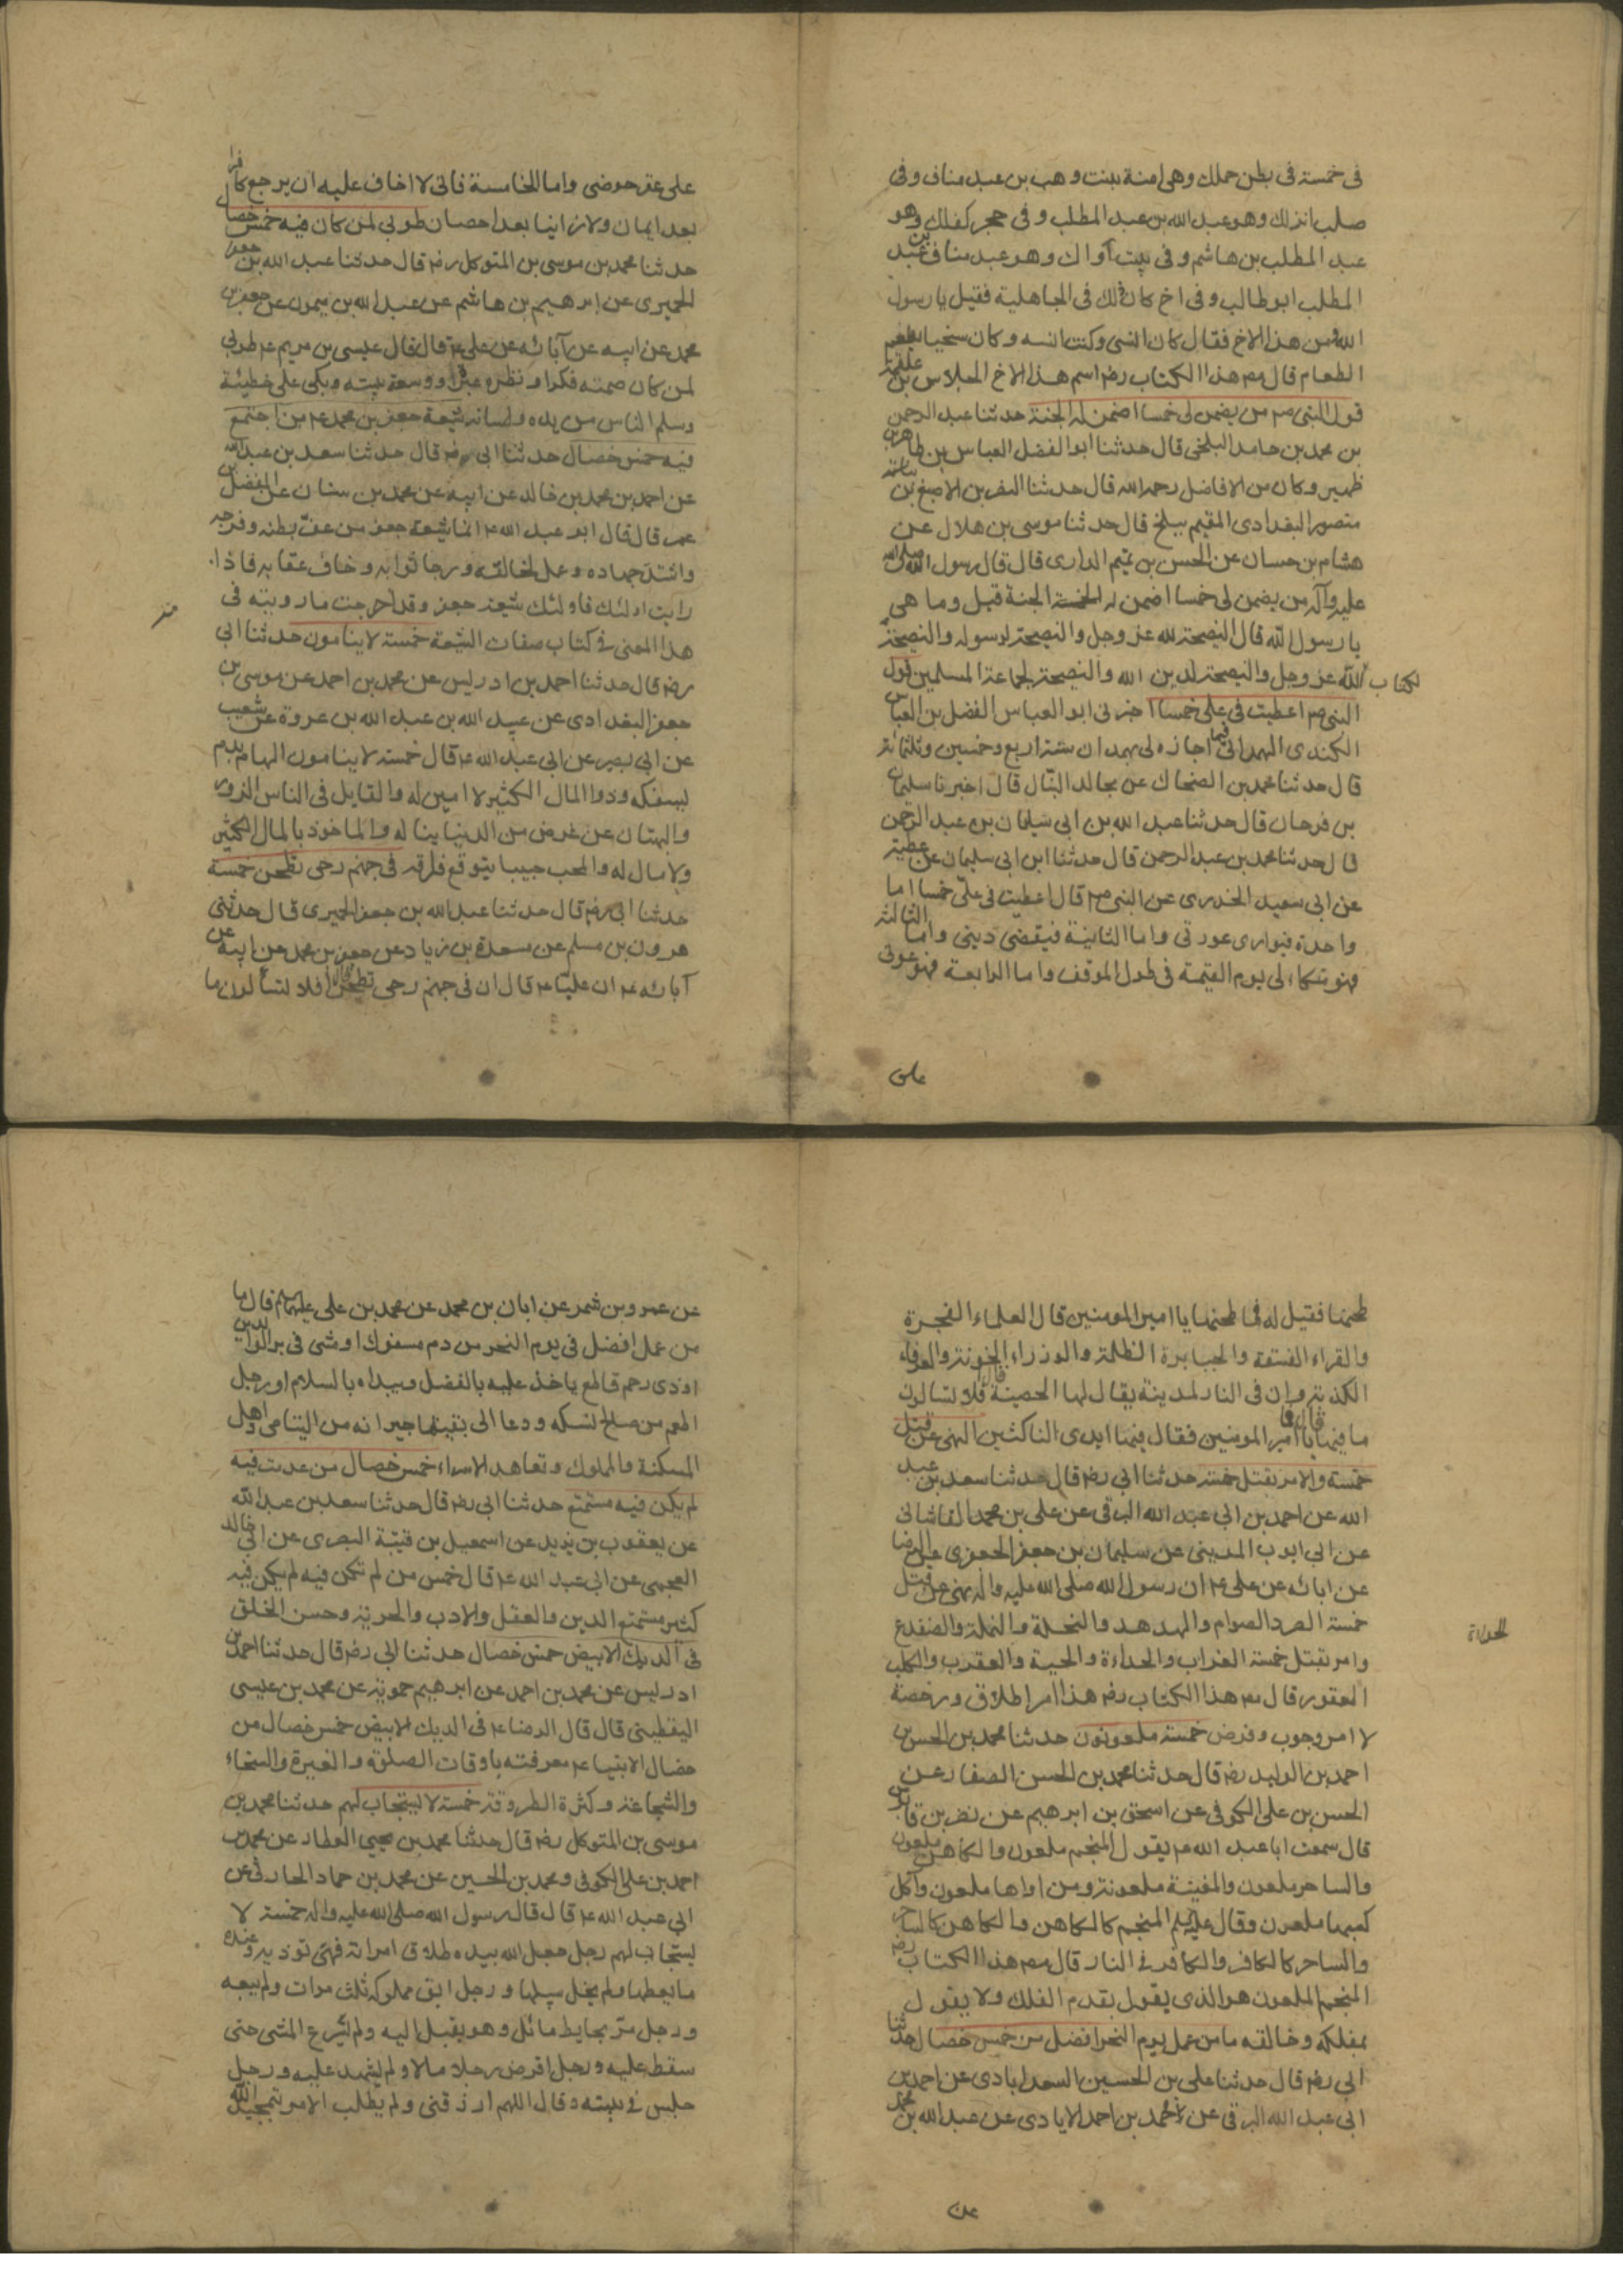 فى خمسة فى بطن حملك وهى امنة بنت وهب بن عبد مناف وفى
صلب انزلك وهو عبد الله بن عبد المطلب وفى حجر كفلك وهو
عبد المطلب بن هاشم وفى بيت آواك وهو عبد مناف بن عبد
المطلب ابو طالب وفى اخ كان لك فى الجاهلية فقيل يا رسول
الله من هذا الاخ فقال كان انسى وكنت انسه وكان سخيا يطعم
الطعام قال مص هذا الكتاب رضه اسم هذا الاخ الجلاس بن علقمة
قول النبى صم من يضمن لى خمسا اضمن له الجنة حدثنا عبد الرحمن
بن محمد بن حامد البلخى قال حدثنا ابو الفضل العباس بن طاهر بن
ظهير وكان من الافاضل رحمه الله قال حدثنا النضر بن الاصبغ بن
منصور البغدادى المقيم ببلخ قال حدثنا موسى بن هلال عن
هشام بن حسان عن الحسن بن تميم الدارى قال قال رسول الله صلى الله
عليه وآله من يضمن لى خمسا اضمن له الجنة قيل وما هى
يا رسول الله قال النصيحة لله عز وجل والنصيحة لرسوله والنصيحة
لكتاب الله عز وجل والنصيحة لدين الله والنصيحة لجماعة المسلمين قول
النبى صم اعطيت فى على خمسا اخبرنى ابو العباس الفضل بن العباس
الكندى الهمدانى فيما اجازه لى بهمدان سنة اربع وخمسين وثلثمائة
قال حدثنا محمد بن الضحاك عن مجالد النبال قال اخبرنا سليمان
بن فرحان قال حدثنا عبد الله بن ابى سليمان بن عبد الرحمن
قال حدثنا محمد بن عبد الرحمن قال حدثنا ابن ابى سليمان عن عطية
عن ابى سعيد الخدرى عن النبى صم قال اعطيت فى على خمسا اما
واحدة فيوارى عورتى واما الثانية فيقضى دينى واما الثالثة
فهو متكاء لى يوم القيمة فى طول الموقف واما الرابعة فهو عونى
على
على عقر حوضى واما الخامسة فانى لا اخاف عليه ان يرجع كافرا
بعد ايمان ولا زانيا بعد احصان طوبى لمن كان فيه خمس خصال
حدثنا محمد بن موسى بن المتوكل رضه قال حدثنا عبد الله بن جعفر
الحميرى عن ابرهيم بن هاشم عن عبد الله بن ميمون عن جعفر بن
محمد عن ابيه عن آبائه عن على ع قال قال عيسى بن مريم ع طوبى
لمن كان صمته فكرا ونظره عبرا ووسعه بيته وبكى على خطيئة
وسلم الناس من يده ولسانه شيعة جعفر بن محمد ع من اجتمع
فيه خمس خصال حدثنا ابى رضه قال حدثنا سعد بن عبد الله
عن احمد بن محمد بن خالد عن ابيه عن محمد بن سنان عن المفضل بن
عمر قال قال ابو عبد الله ع انما شيعة جعفر من عف بطنه وفرجه
واشتد جهاده وعمل لخالقه ورجا ثوابه وخاف عقابه فاذا
رايت اولئك فاولئك شيعة جعفر وقد اخرجت ما رويته فى
هذا المعنى فى كتاب صفات الشيعة خمسة لا ينامون حدثنا ابى
رضه قال حدثنا احمد بن ادريس عن محمد بن احمد عن موسى بن
جعفر البغدادى عن عبيد الله بن عبد الله بن عروة عن شعيب
عن ابى بصير عن ابى عبد الله ع قال خمسة لا ينامون الهام بدم
يسفكه وذو المال الكثير لا امين له والقايل فى الناس الزور
والبهتان عن غرض من الدنيا يناله والماخوذ بالمال الكثير
ولا مال له والمحب حبيبا يتوقع فراقه فى جهنم رحى تطحن خمسة
حدثنا ابى رضه قال حدثنا عبد الله بن جعفر الحميرى قال حدثنى
هرون بن مسلم عن مسعدة بن زياد عن جعفر بن محمد عن ابيه عن
آبائه ع ان عليا ع قال ان فى جهنم رحى تطحن افلا تسألون ما
طحنها فقيل له فما طحنها يا امير المومنين قال العلماء الفجرة
والقراء الفسقة والجبابرة الظلمة والوزراء الخونة والعرفاء
الكذبة وان فى النار لمدينة يقال لها الحصينة افلا تسالون
ما فيها يا امير المومنين فقال فيها ايدى الناكثين النهى عن قتل
خمسة والامر بقتل خمسة حدثنا ابى رضه قال حدثنا سعد بن عبد
الله عن احمد بن ابى عبد الله البرقى عن على بن محمد القاشانى
عن ابى ايوب المدينى عن سليمان بن جعفر الجعفرى عن الرضا
عن ابائه عن على ع ان رسول الله صلى الله عليه واله نهى عن قتل
خمسة الصرد الصوام والهدهد والنحلة والنملة والضفدع
وامر بقتل خمسة الغراب والحداءة والحية والعقرب والكلب
الحداة
العقور قال مص هذا الكتاب رضه هذا امر اطلاق ورخصة
لا امر وجوب وفرض خمسة ملعونون حدثنا محمد بن الحسن بن
احمد بن الوليد رضه قال حدثنا محمد بن الحسن الصفار عن
الحسن بن على الكوفى عن اسحق بن ابرهيم عن نصر بن قابوس
قال سمعت ابا عبد الله ع يقول المنجم ملعون والكاهن ملعون
والساحر ملعون والمغنية ملعونة ومن اواها ملعون وآكل
كسبها ملعون وقال عليه السلم المنجم كالكاهن والكاهن كالساحر
والساحر كالكافر والكافر فى النار قال مص هذا الكتاب رضه
المنجم الملعون هو الذى يقول بقدم الفلك ولا يقول
بمفلكه وخالقه ما من عمل يوم النحر افضل من خمس خصال حدثنا
ابى رضه قال حدثنا على بن الحسين السعدابادى عن احمد بن
ابى عبد الله البرقى عن احمد بن احمد الايادى عن عبد الله بن محمد
عن
عن عمرو بن شمر عن ابان بن محمد عن محمد بن على عليهما السلم قال ما
من عمل افضل فى يوم النحر من دم مسفوك او مشى فى بر الوالدين
او ذى رحم قاطع ياخذ عليه بالفضل ويبداه بالسلام او رجل
اطعم من صالح نسكه ودعا الى بقيتها جيرانه من اليتامى واهل
المسكنة والمملوك وتعاهد الاسراء خمس خصال من عدمت فيه
لم يكن فيه مستمتع حدثنا ابى رضه قال حدثنا سعد بن عبد الله
عن يعقوب بن يزيد عن اسمعيل بن قتيبة البصرى عن ابى خالد
العجمى عن ابى عبد الله ع قال خمس من لم تكن فيه لم يكن فيه
كثير مستمتع الدين والعقل والادب والحرية وحسن الخلق
فى الديك الابيض خمس خصال حدثنا ابى رضه قال حدثنا احمد بن
ادريس عن محمد بن احمد عن ابرهيم حمويه عن محمد بن عيسى
اليقطينى قال قال الرضا ع فى الديك الابيض خمس خصال من
خصال الانبيا ع معرفته باوقات الصلوة والغيرة والسخاء
والشجاعة وكثرة الطروقة خمسة لا يستجاب لهم حدثنا محمد بن
موسى بن المتوكل رضه قال حدثنا محمد بن يحيى العطار عن محمد بن
احمد بن على الكوفى ومحمد بن الحسين عن محمد بن حماد الحارثى عن
ابى عبد الله ع قال قال رسول الله صلى الله عليه واله خمسة لا
يستجاب لهم رجل جعل الله بيده طلاق امراته فهى توذيه وعنده
ما يعطها ولم يخل سبيلها ورجل ابق مملوكه ثلث مرات ولم يبعه
ورجل مر بحايط مائل وهو يقبل اليه ولم يسرع المشى حتى
سقط عليه ورجل اقرض رجلا مالا ولم يشهد عليه ورجل
جلس فى بيته وقال اللهم ارزقنى ولم يطلب